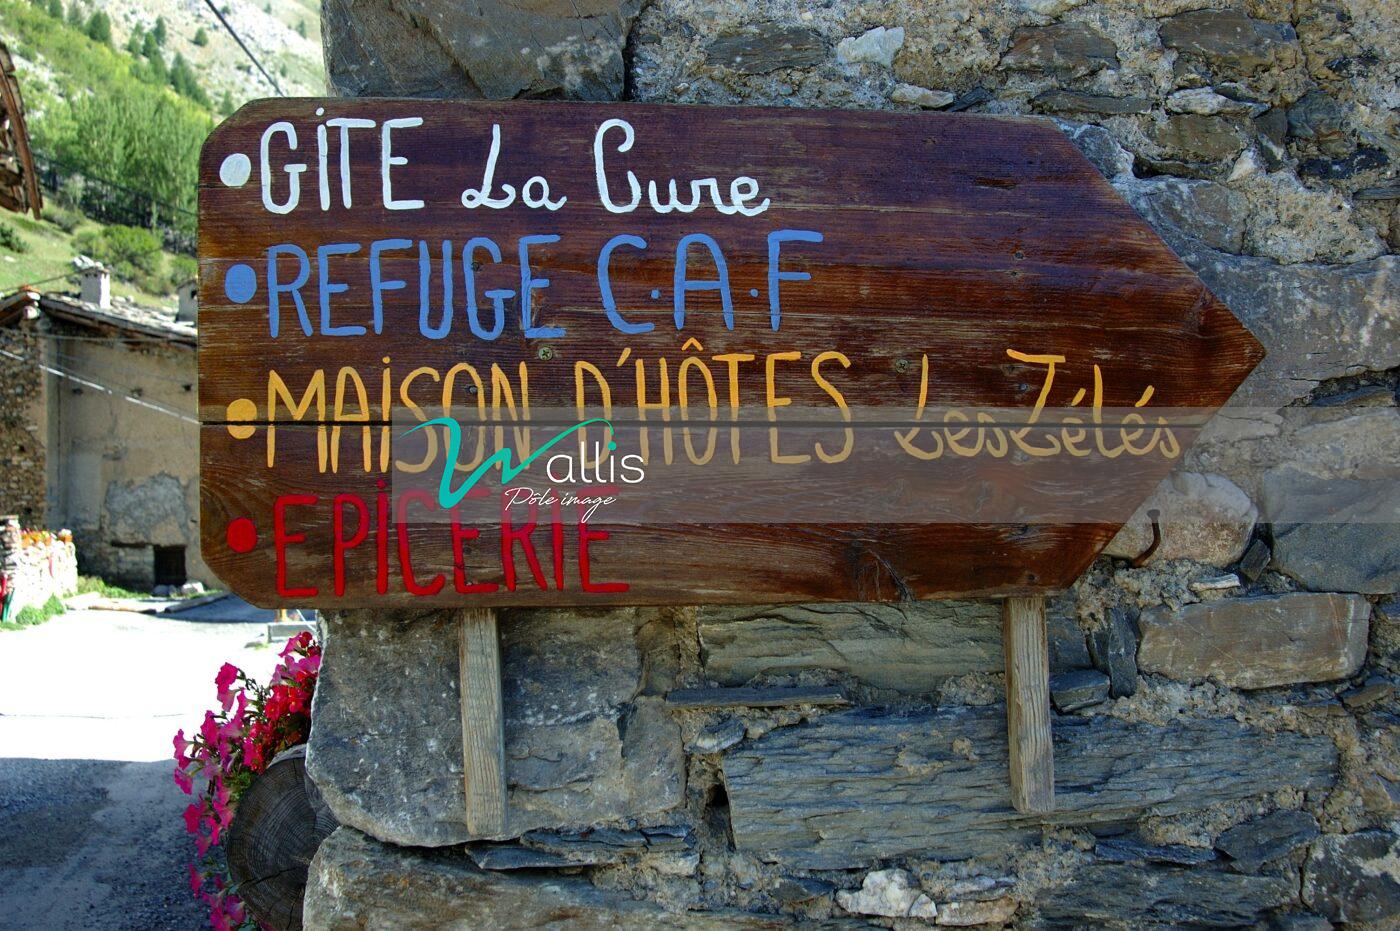 GiTE La Cure
REFUGE C.A.F
MAiSON D'HÔTES Les Zélés
EPiCERIE
Wallis
Pôle image